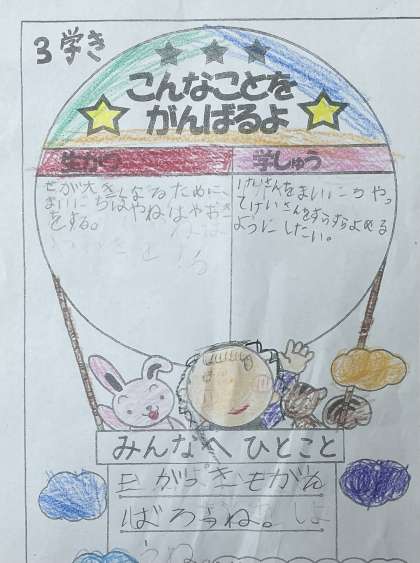 3学き
こんなことを
がんばるよ
生かつ
せが大きくなるために、
まいにちはやね、はやおき
をする。
学しゅう
けいさんをまいにちやっ
てけいさんをすらすらよめる
ようにしたい。
みんなへ ひとこと
三がっきもがん
ばろうね。